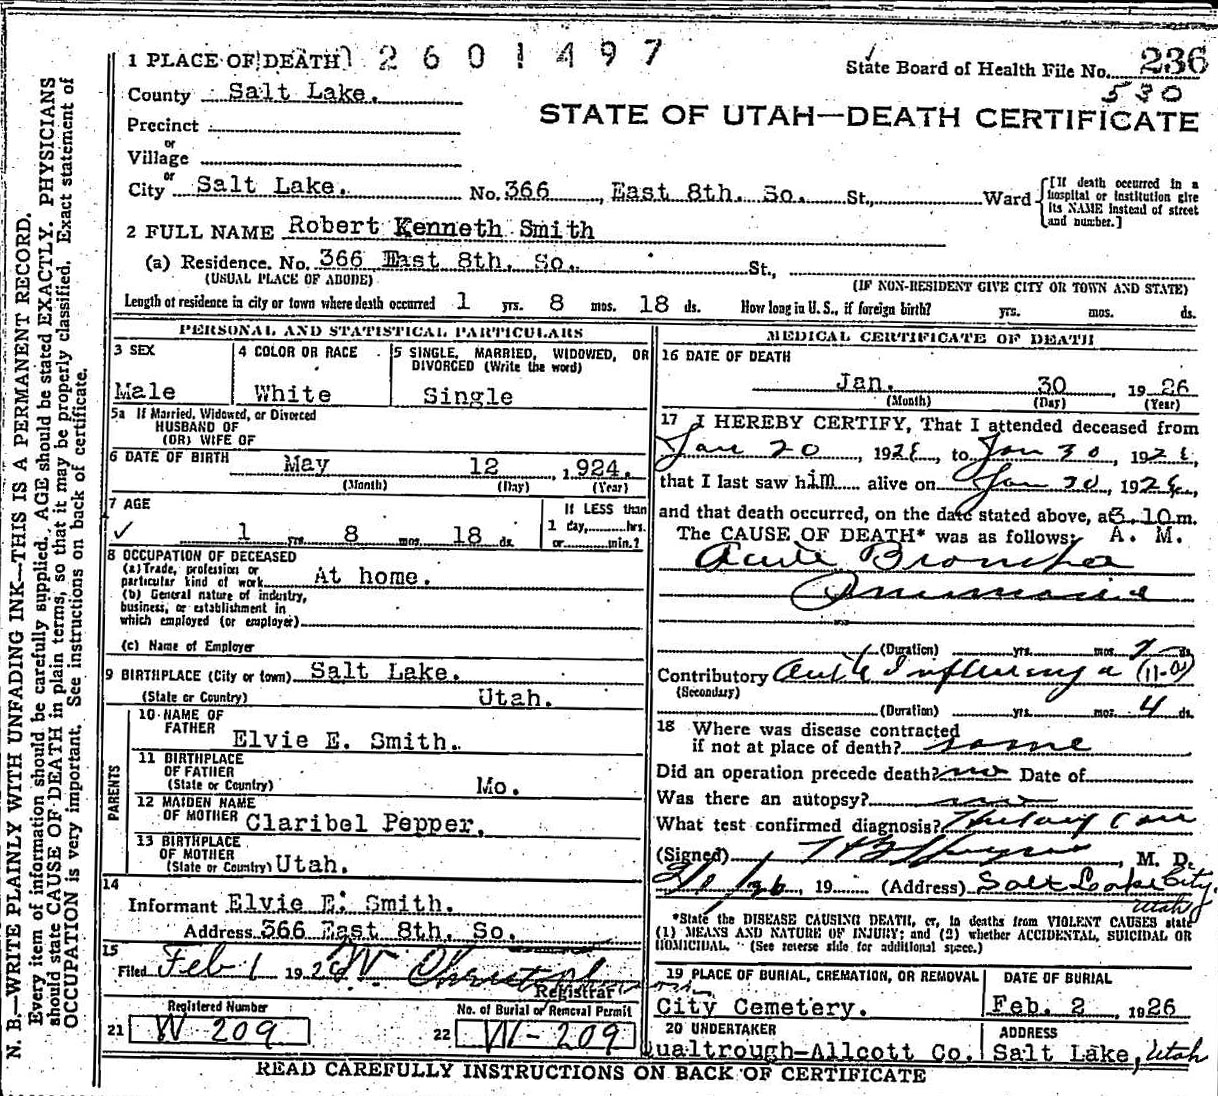 1 PLACE OF DEATH 2601497
State Board of Health File No. 236
530
County Salt Lake.
STATE OF UTAH—DEATH CERTIFICATE
Precinct
or
Village
or
City Salt Lake. No. 366, East 8th. So. St., Ward
[If death occurred in a hospital or institution give its NAME instead of street and number.]
2 FULL NAME Robert Kenneth Smith
(a) Residence. No. 366 East 8th. So. St.,
(USUAL PLACE OF ABODE) (IF NON-RESIDENT GIVE CITY OR TOWN AND STATE)
Length of residence in city or town where death occurred 1 yrs. 8 mos. 18 ds. How long in U. S., if foreign birth? yrs. mos. ds.
PERSONAL AND STATISTICAL PARTICULARS
3 SEX
Male
4 COLOR OR RACE
White
5 SINGLE, MARRIED, WIDOWED, OR DIVORCED (Write the word)
Single
5a If Married, Widowed, or Divorced
HUSBAND OF
(OR) WIFE OF
6 DATE OF BIRTH May 12, 1924.
(Month) (Day) (Year)
7 AGE
1 yrs. 8 mos. 18 ds.
If LESS than
1 day, hrs.
or min.?
8 OCCUPATION OF DECEASED
(a) Trade, profession or
particular kind of work At home.
(b) General nature of industry,
business, or establishment in
which employed (or employer)
(c) Name of Employer
9 BIRTHPLACE (City or town) Salt Lake.
(State or Country) Utah.
PARENTS
10 NAME OF
FATHER Elvie E. Smith.
11 BIRTHPLACE
OF FATHER
(State or Country) Mo.
12 MAIDEN NAME
OF MOTHER Claribel Pepper.
13 BIRTHPLACE
OF MOTHER
(State or Country) Utah.
14
Informant Elvie E. Smith.
Address 366 East 8th. So.
15
Filed Feb 1 192
Registrar
Registered Number
21 W 209
No. of Burial or Removal Permit
22 W-209
MEDICAL CERTIFICATE OF DEATH
16 DATE OF DEATH
Jan. 30, 1926
(Month) (Day) (Year)
17 I HEREBY CERTIFY, That I attended deceased from
Jan 20, 1926, to Jan 30, 1926,
that I last saw him alive on Jan 30, 1926,
and that death occurred, on the date stated above, at 3.10 m.
The CAUSE OF DEATH* was as follows: A. M.
Acute Broncho
Pneumonia
(Duration) yrs. mos. ds.
Contributory Acute Influenza
(Secondary)
(Duration) yrs. mos. 4 ds.
18 Where was disease contracted
if not at place of death? same
Did an operation precede death? no Date of
Was there an autopsy? no
What test confirmed diagnosis?
(Signed) , M. D.
2/1/26, 19 (Address) Salt Lake City,
Utah
*State the DISEASE CAUSING DEATH, or, in deaths from VIOLENT CAUSES state
(1) MEANS AND NATURE OF INJURY; and (2) whether ACCIDENTAL, SUICIDAL OR
HOMICIDAL. (See reverse side for additional space.)
19 PLACE OF BURIAL, CREMATION, OR REMOVAL
City Cemetery.
DATE OF BURIAL
Feb. 2, 1926
20 UNDERTAKER
Qualtrough-Allcott Co.
ADDRESS
Salt Lake, Utah
READ CAREFULLY INSTRUCTIONS ON BACK OF CERTIFICATE
N. B.—WRITE PLAINLY WITH UNFADING INK—THIS IS A PERMANENT RECORD.
Every item of information should be carefully supplied. AGE should be stated EXACTLY. PHYSICIANS
should state CAUSE OF DEATH in plain terms, so that it may be properly classified. Exact statement of
OCCUPATION is very important. See instructions on back of certificate.